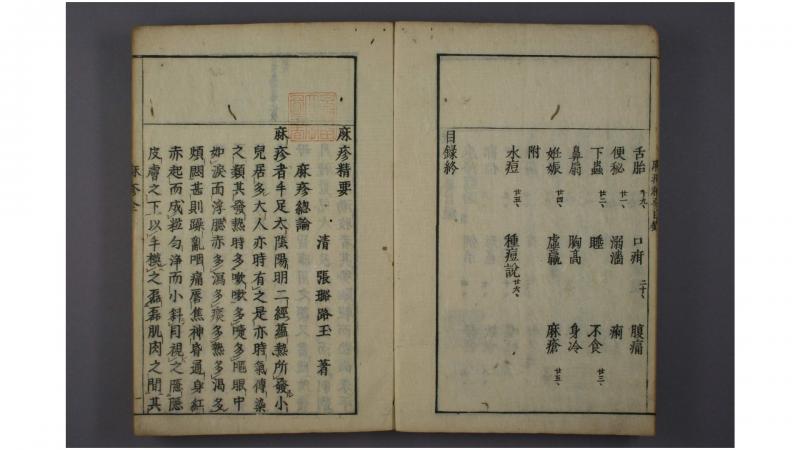 舌胎 十九、 口疳 二十、 腹痛
便秘 廿一、 溺濇 痢
下蟲 廿二、 睡 不食 廿三、
鼻扇 胸高 身冷
妊娠 廿四、 虛羸 麻瘡 廿五、
附
水痘 廿五、 種痘說 廿六、
目録終
麻疹精要
清 張璐路玉 著
麻疹總論
麻疹者手足太陰陽明二經蘊熱所發小
兒居多大人亦時有之是亦時氣傳染
之類其發熱時多欬嗽多嚏多眼中
如淚面浮腫赤多瀉多痰多熱多渴多
煩悶甚則躁亂咽痛唇焦神昏通身紅
赤起而成粒勻淨而小斜目視之隱隱
皮膚之下以手摸之磊磊肌肉之間其